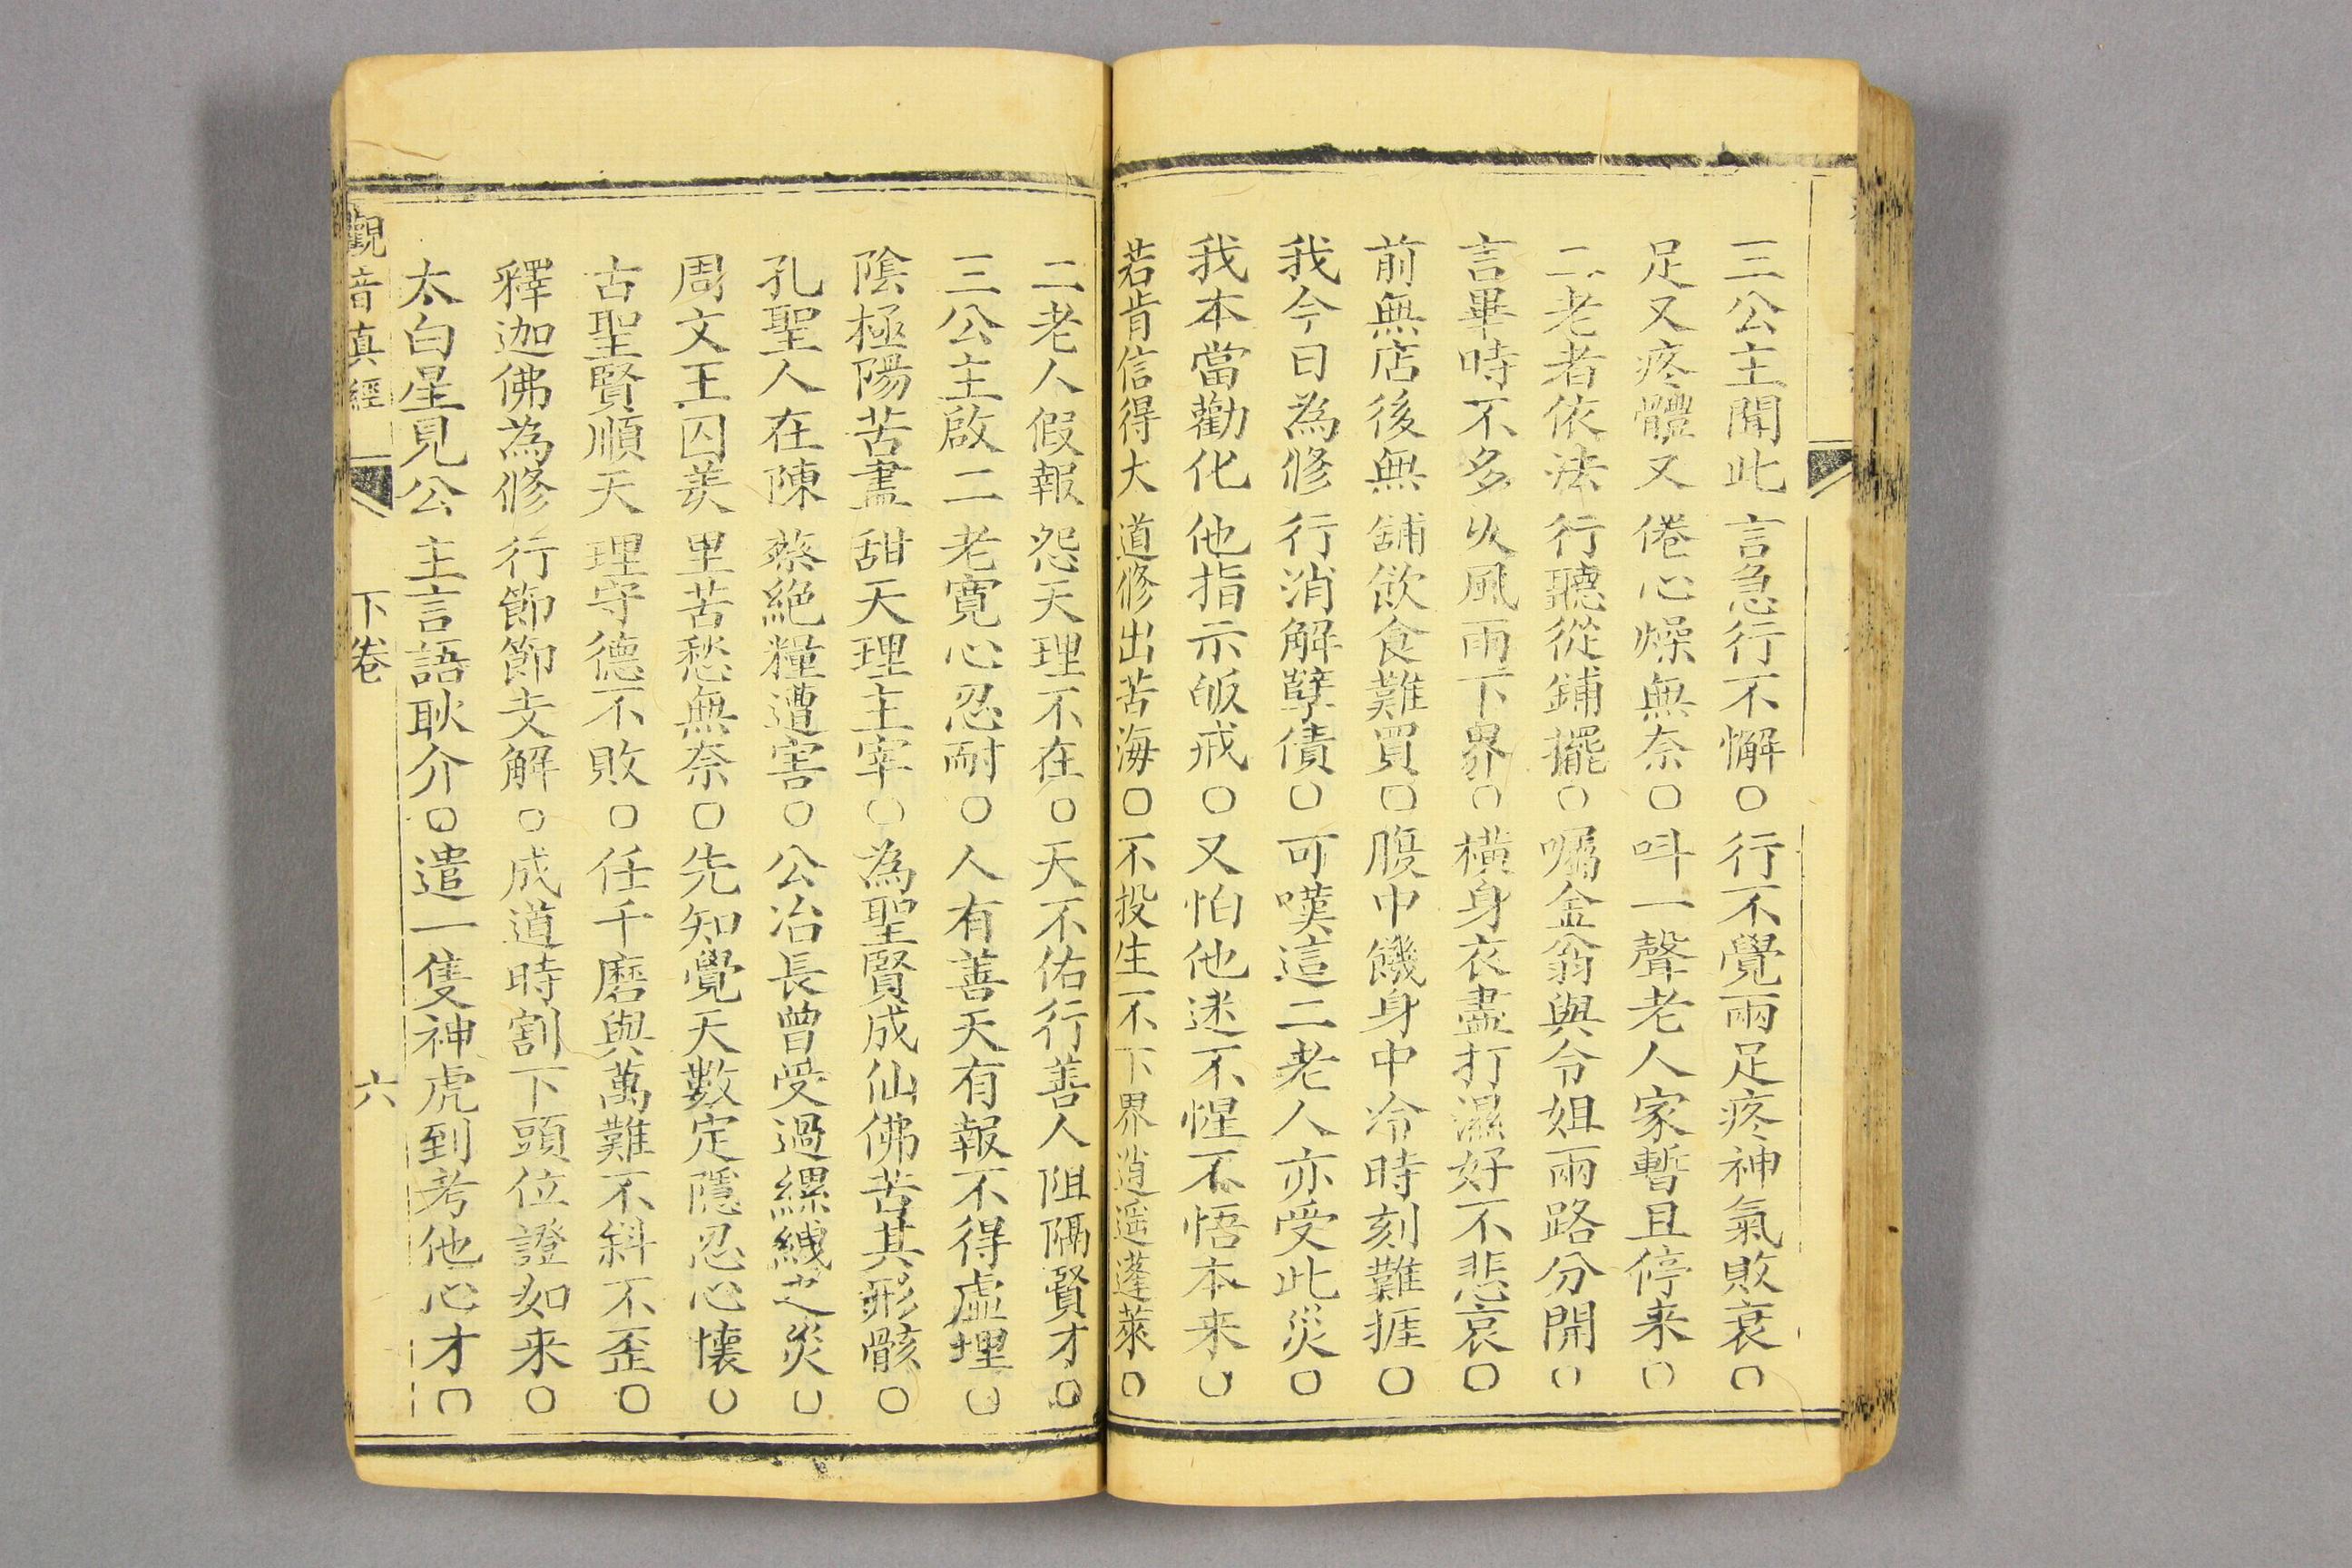 三公主聞此言急行不懈○行不覺兩足疼神氣敗衰○
足又疼體又倦心燥無奈○呌一聲老人家暫且停来○
二老者依法行聽從鋪擺○囑金翁與令姐兩路分開○
言畢時不多久風雨下界○橫身衣盡打濕好不悲哀○
前無店後無舖飲食難買○腹中饑身中冷時刻難捱○
我今日為修行消解孽債○可嘆這二老人亦受此災○
我本當勸化他指示皈戒○又怕他迷不惺不悟本来○
若肯信得大道修出苦海○不投生不下界逍遥蓬萊○
二老人假報怨天理不在○天不佑行善人阻隔賢才○
三公主啟二老寛心忍耐○人有善天有報不得虛埋○
陰極陽苦盡甜天理主宰○為聖賢成仙佛苦其形骸○
孔聖人在陳蔡絕糧遭害○公冶長曾受過縲絏之災○
周文王囚羑里苦愁無奈○先知覺天數定隱忍心懷○
古聖賢順天理守德不敗○任千磨與萬難不斜不歪○
釋迦佛為修行節節支解○成道時割下頭位證如来○
太白星見公主言語耿介○遣一隻神虎到考他心才○
觀音真經 下卷 六